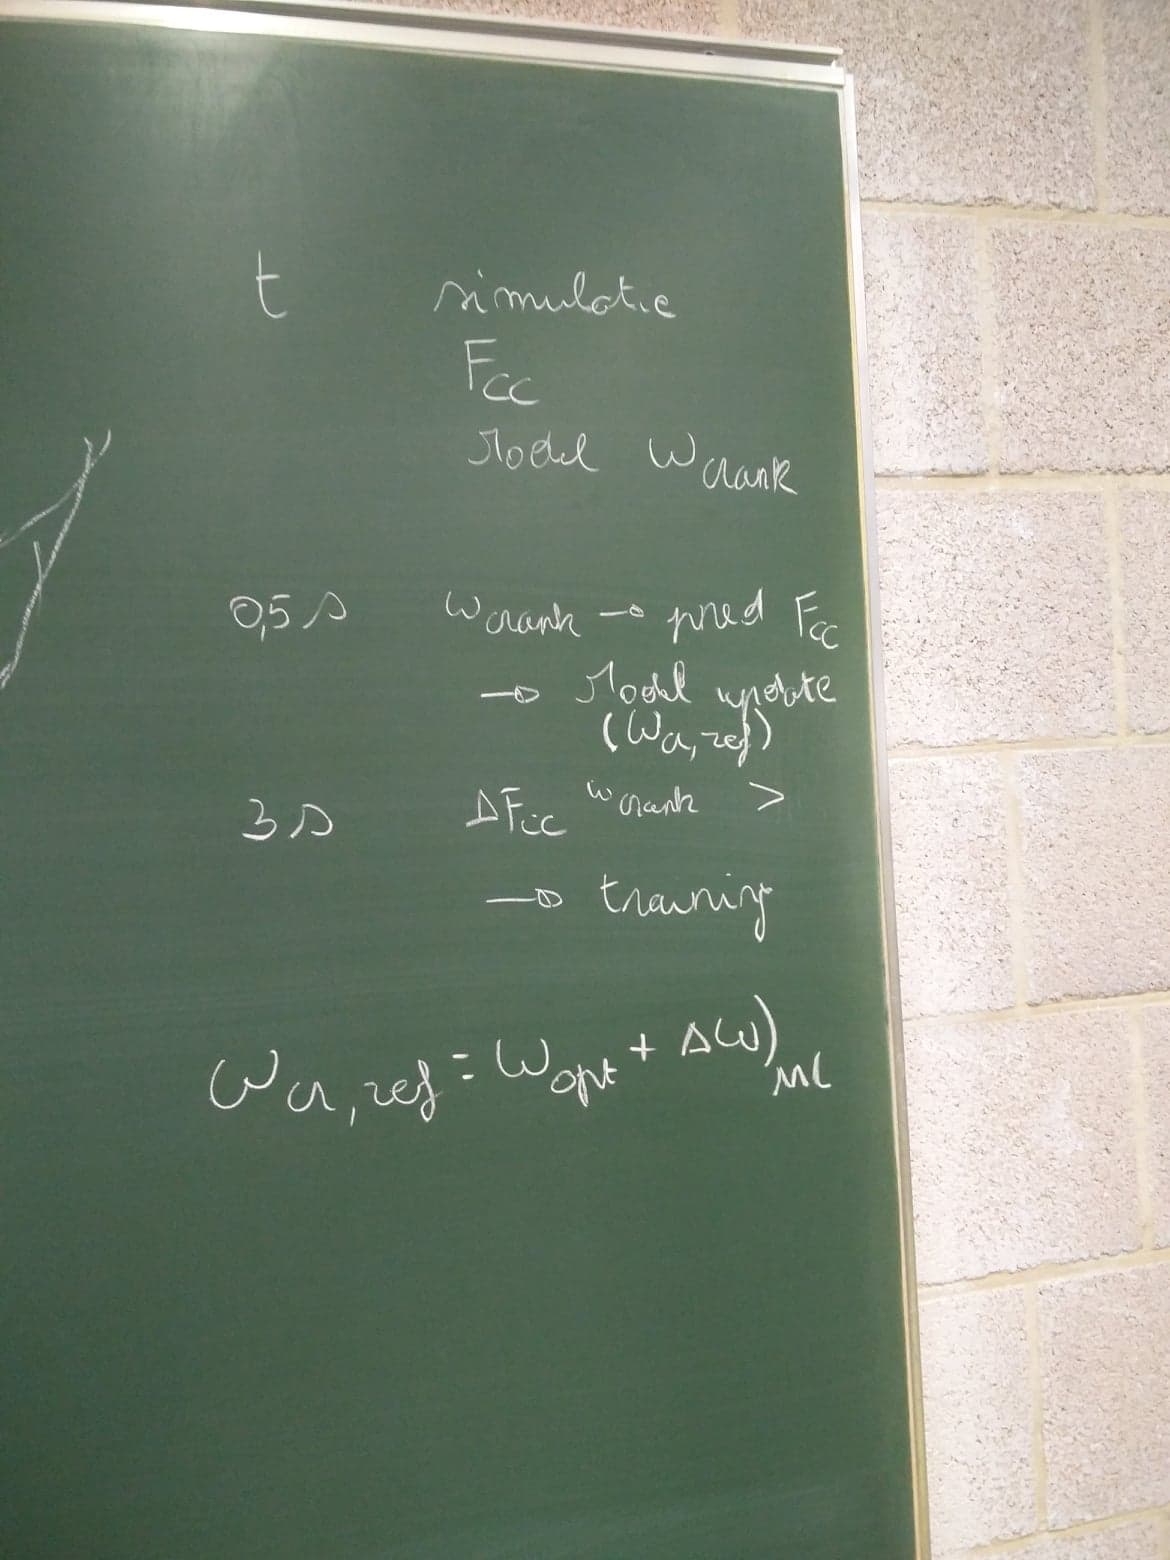 t simulatie
Fcc
Model ωcrank
0,5 s ωcrank → pred Fcc
→ Model update
(ωcr, ref)
3 s ΔFcc ωcrank >
→ training
ωcr, ref = ωopt + Δω)ML